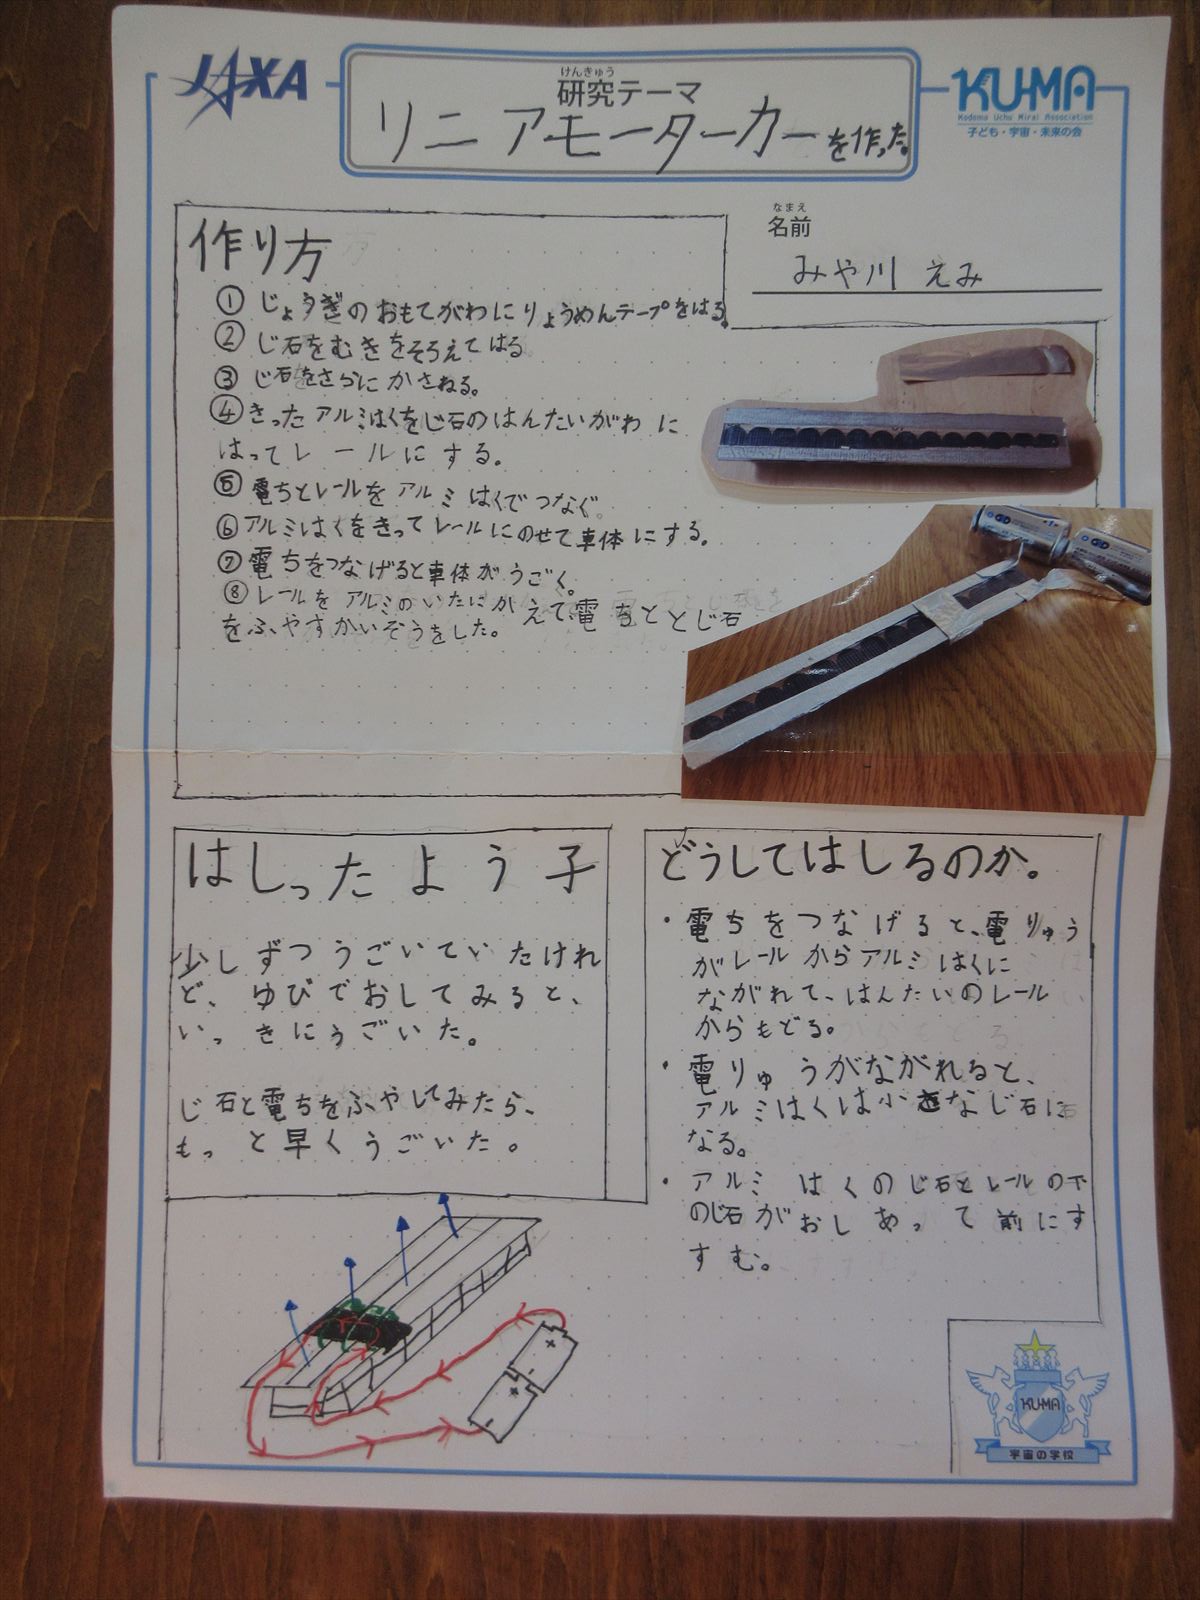 JAXA
けんきゅう
研究テーマ
リニアモーターカーを作った。
KU-MA
Kodomo Uchu Mirai Association
子ども・宇宙・未来の会
なまえ
名前
みや川 えみ
作り方
① じょうぎのおもてがわにりょうめんテープをはる
② じ石をむきをそろえてはる
③ じ石をさらにかさねる。
④ きったアルミはくをじ石のはんたいがわに
はってレールにする。
⑤ 電ちとレールをアルミはくでつなぐ。
⑥ アルミはくをきってレールにのせて車体にする。
⑦ 電ちをつなげると車体がうごく。
⑧ レールをアルミのいたにかえて、電ちととじ石
をふやすかいぞうをした。
はしったよう子
少しずつうごいていたけれ
ど、ゆびでおしてみると、
いっきにうごいた。
じ石と電ちをふやしてみたら、
もっと早くうごいた。
どうしてはしるのか。
・電ちをつなげると、電りゅう
がレールからアルミはくに
ながれて、はんたいのレール
からもどる。
・電りゅうがながれると、
アルミはくは小さなじ石に
なる。
・アルミはくのじ石とレールの下
のじ石がおしあって前にす
すむ。
+
-
+
-
KUMA
宇宙の学校